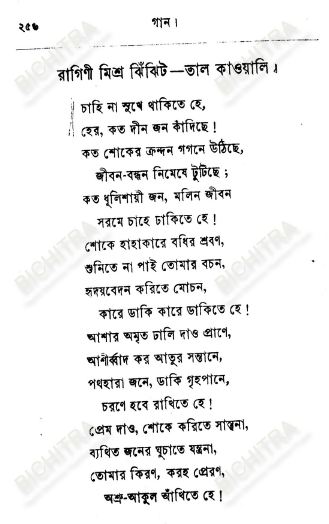 ২৫৬ গান।
রাগিণী মিশ্র ঝিঁঝিট—তাল কাওয়ালি।
চাহি না সুখে থাকিতে হে,
হের, কত দীন জন কাঁদিছে!
কত শোকের ক্রন্দন গগনে উঠিছে,
জীবন-বন্ধন নিমেষে টুটিছে;
কত ধূলিশায়ী জন, মলিন জীবন
সরমে চাহে ঢাকিতে হে!
শোকে হাহাকারে বধির শ্রবণ,
শুনিতে না পাই তোমার বচন,
হৃদয়বেদন করিতে মোচন,
কারে ডাকি কারে ডাকিতে হে!
আশার অমৃত ঢালি দাও প্রাণে,
আশীর্ব্বাদ কর আতুর সন্তানে,
পথহারা জনে, ডাকি গৃহপানে,
চরণে হবে রাখিতে হে!
প্রেম দাও, শোকে করিতে সান্ত্বনা,
ব্যথিত জনের ঘুচাতে যন্ত্রনা,
তোমার কিরণ, করহ প্রেরণ,
অশ্রু-আকুল আঁখিতে হে!
BICHITRA
BICHITRA
BICHITRA
BICHITRA
BICHITRA
BICHITRA